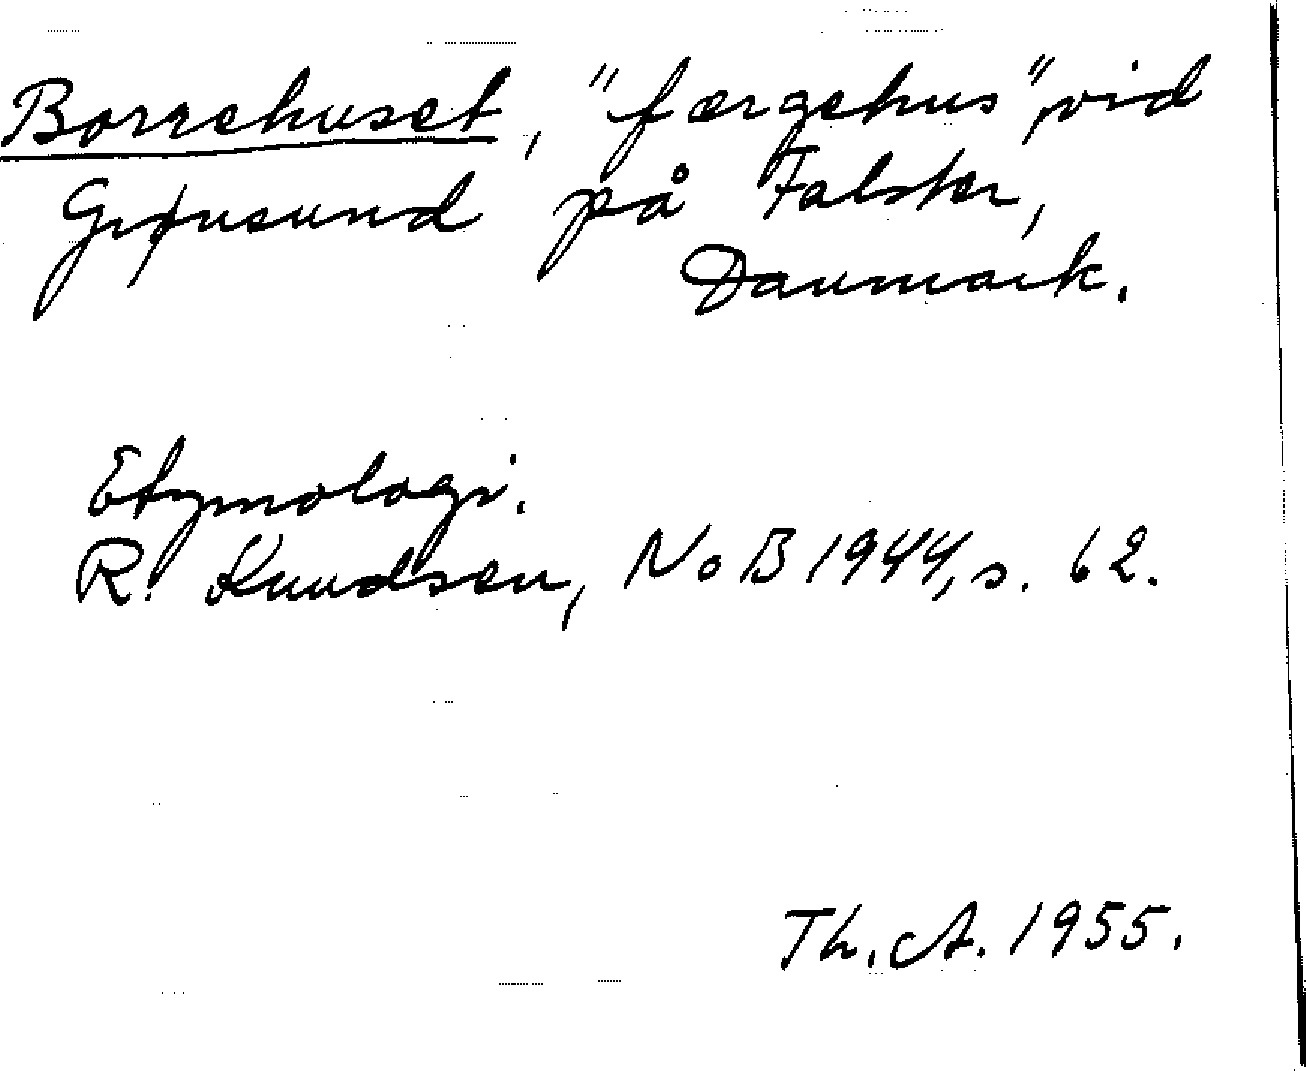 Borrehuset, "færgehus", vid
Grønsund på Falster,
Danmark.
Etymologi.
R. Knudsen, NoB 1944, s. 62.
Th. A. 1955.